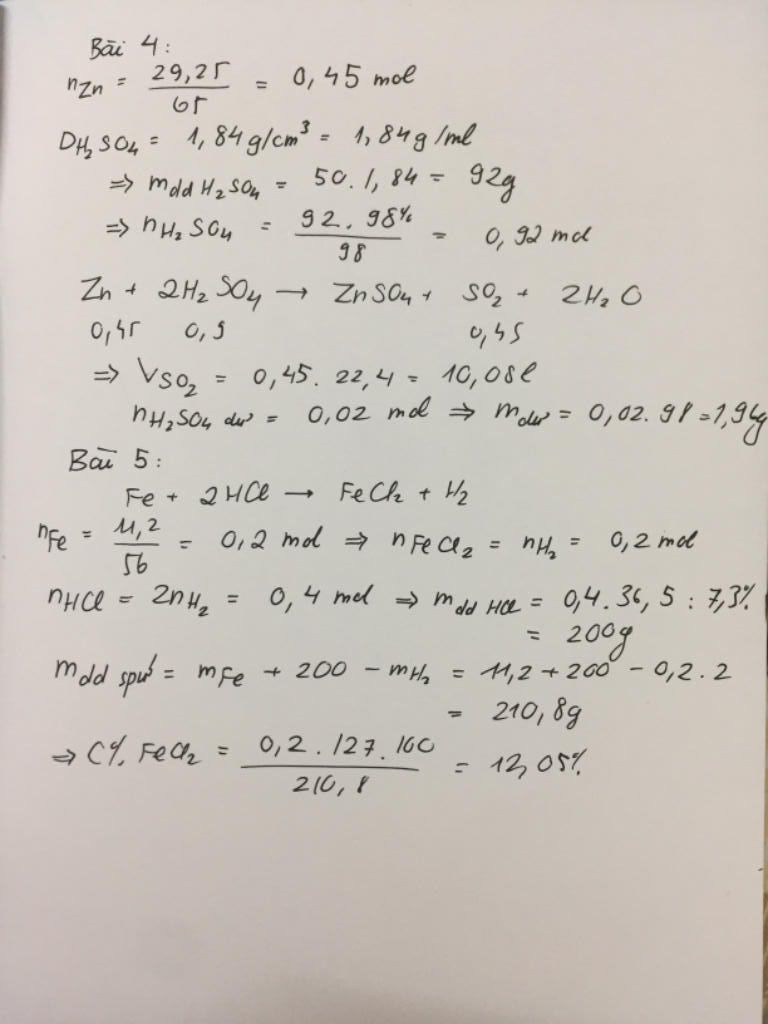 Bài 4:
nZn = 29,25/65 = 0,45 mol
DH2SO4 = 1,84g/cm³ = 1,84g/ml
⇒ mdd H2SO4 = 50.1,84 = 92g
⇒ nH2SO4 = 92.98%/98 = 0,92 mol
Zn + 2H2SO4 → ZnSO4 + SO2 + 2H2O
0,45 0,9 0,45
⇒ VSO2 = 0,45.22,4 = 10,08l
nH2SO4 dư = 0,02 mol ⇒ mdư = 0,02.98=1,96g
Bài 5:
Fe + 2HCl → FeCl2 + H2
nFe = 11,2/56 = 0,2 mol ⇒ nFeCl2 = nH2 = 0,2 mol
nHCl = 2nH2 = 0,4 mol ⇒ mdd HCl = 0,4.36,5 : 7,3%
= 200g
mdd spứ = mFe + 200 - mH2 = 11,2+200 - 0,2.2
= 210,8g
⇒ C% FeCl2 = 0,2.127.100/210,8 = 12,05%